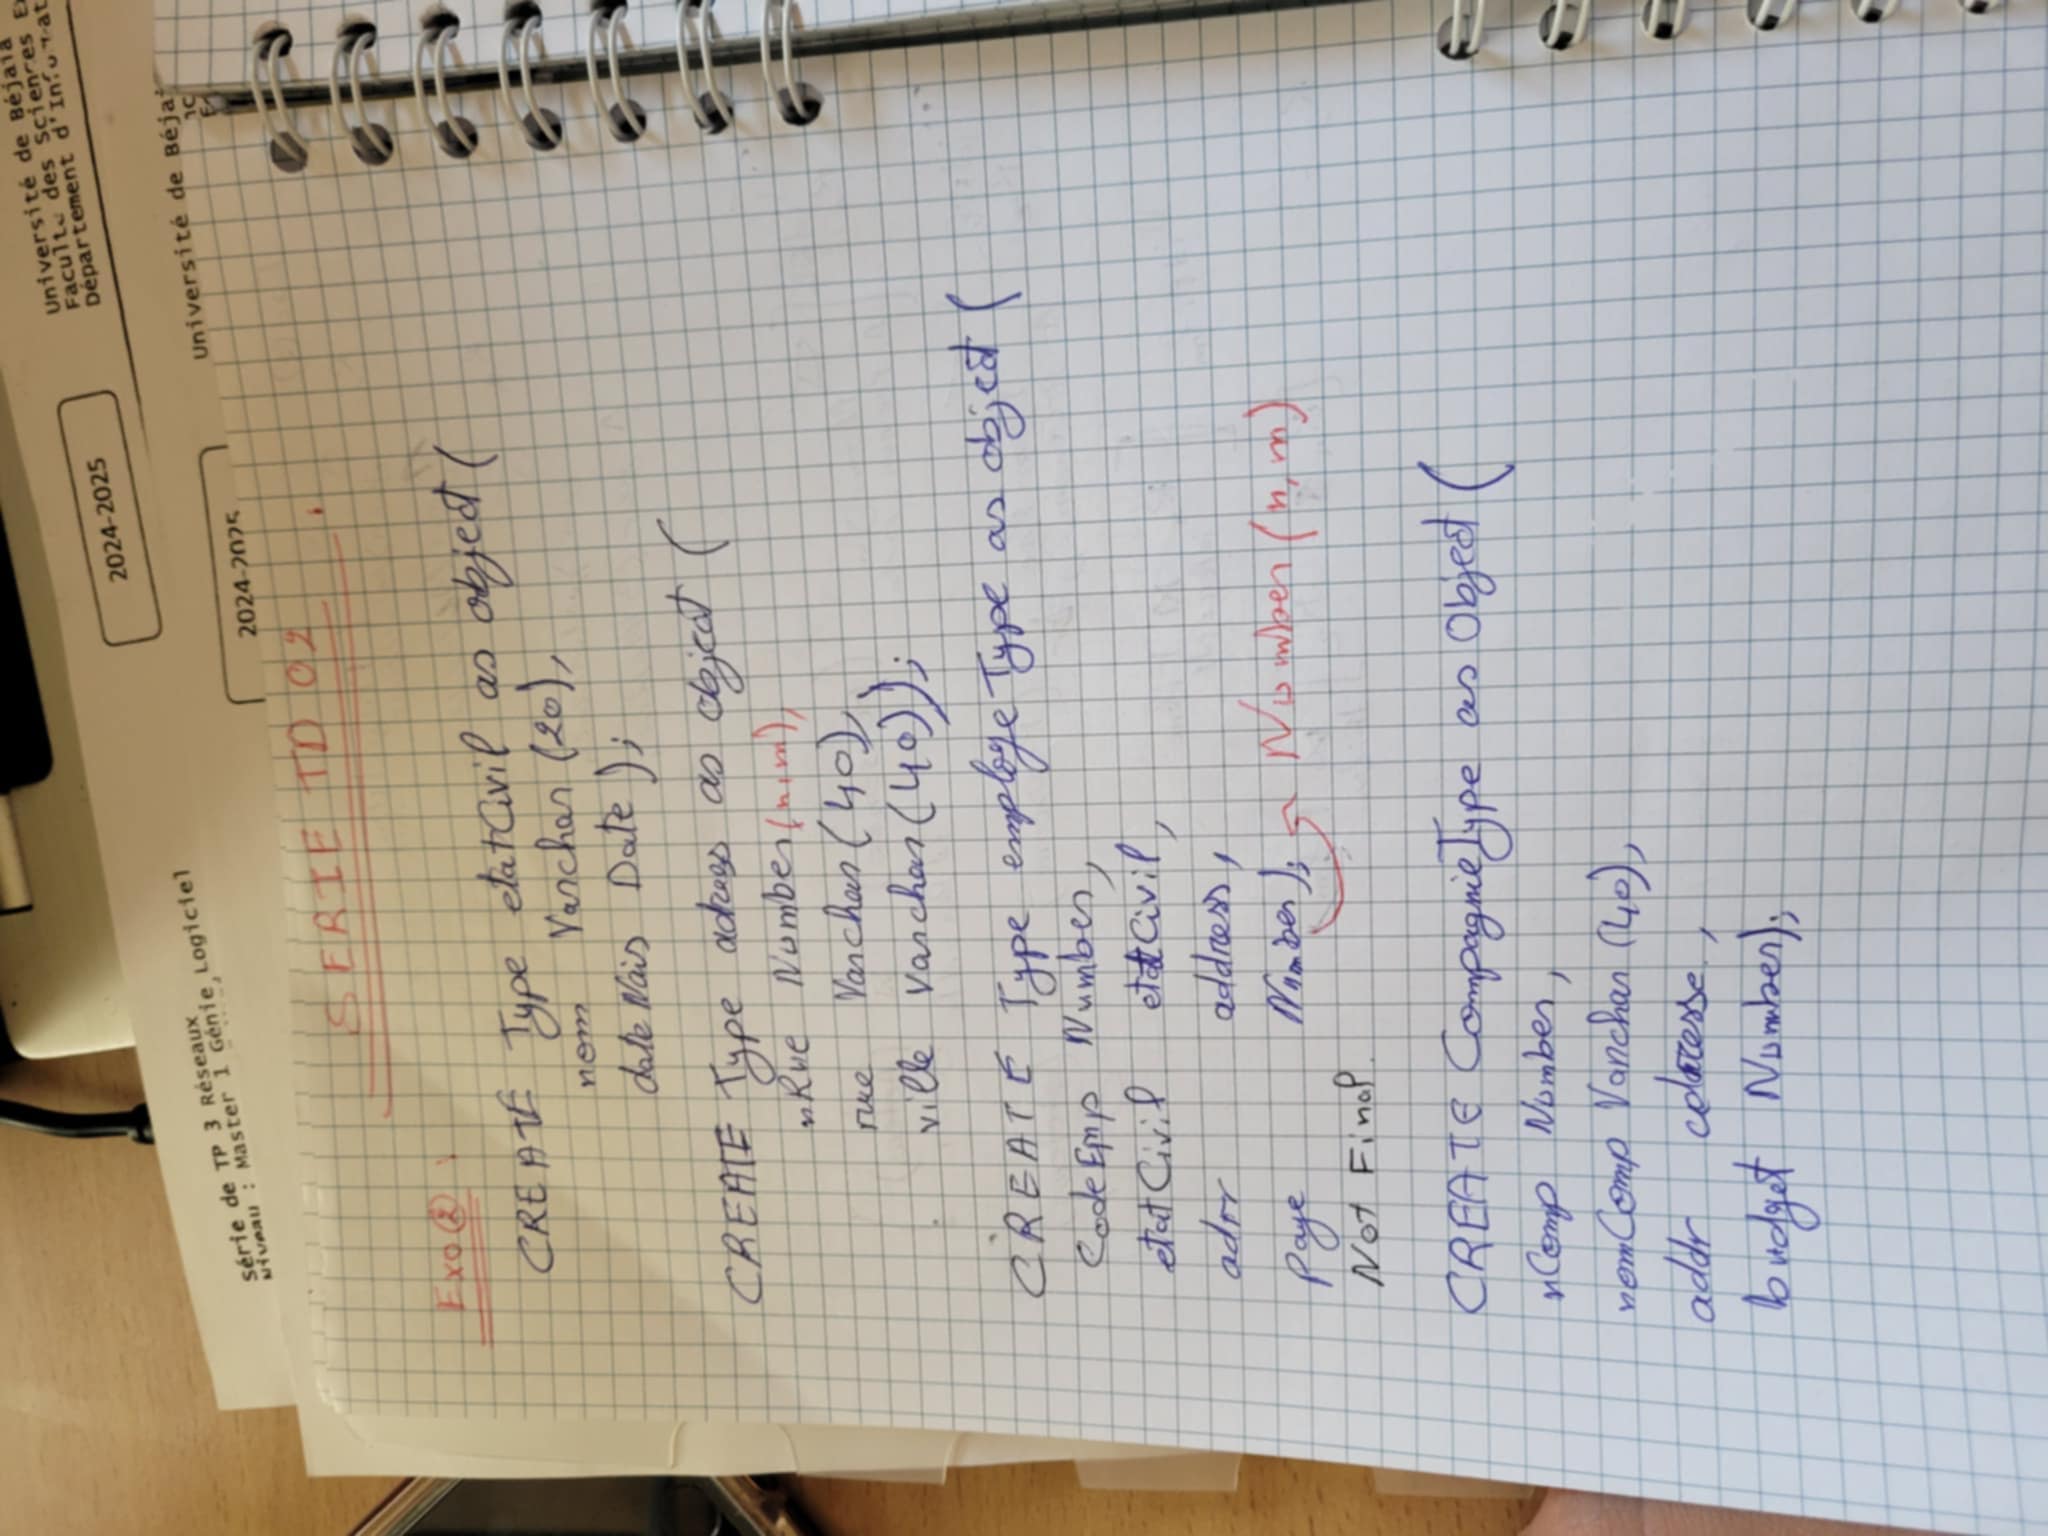 Université de Béjaïa
Faculté des Sciences Ex
Département d'Informat
2024-2025
Série de TP 3 Réseaux
Niveau : Master 1 Génie Logiciel
Université de Béjaï
2024-2025
SERIE TD 02
Exo ② :
CREATE Type etatCivil as object (
nom Varchar (20),
dateNais Date );
CREATE Type adress as object (
nRue Number (n,m),
rue Varchar (40),
ville Varchar (40));
CREATE Type employeType as object (
CodeEmp Number,
etatCivil etatCivil,
adrr address,
paye Number); Number (n, m)
Not Final.
CREATE CompagnieType as Object (
nComp Number,
nomComp Varchar (40),
addr adresse,
budget Number);